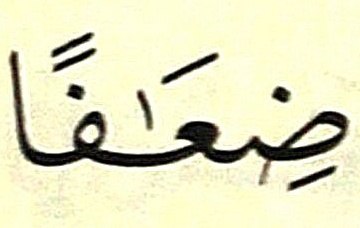 ضِعَٰفًا